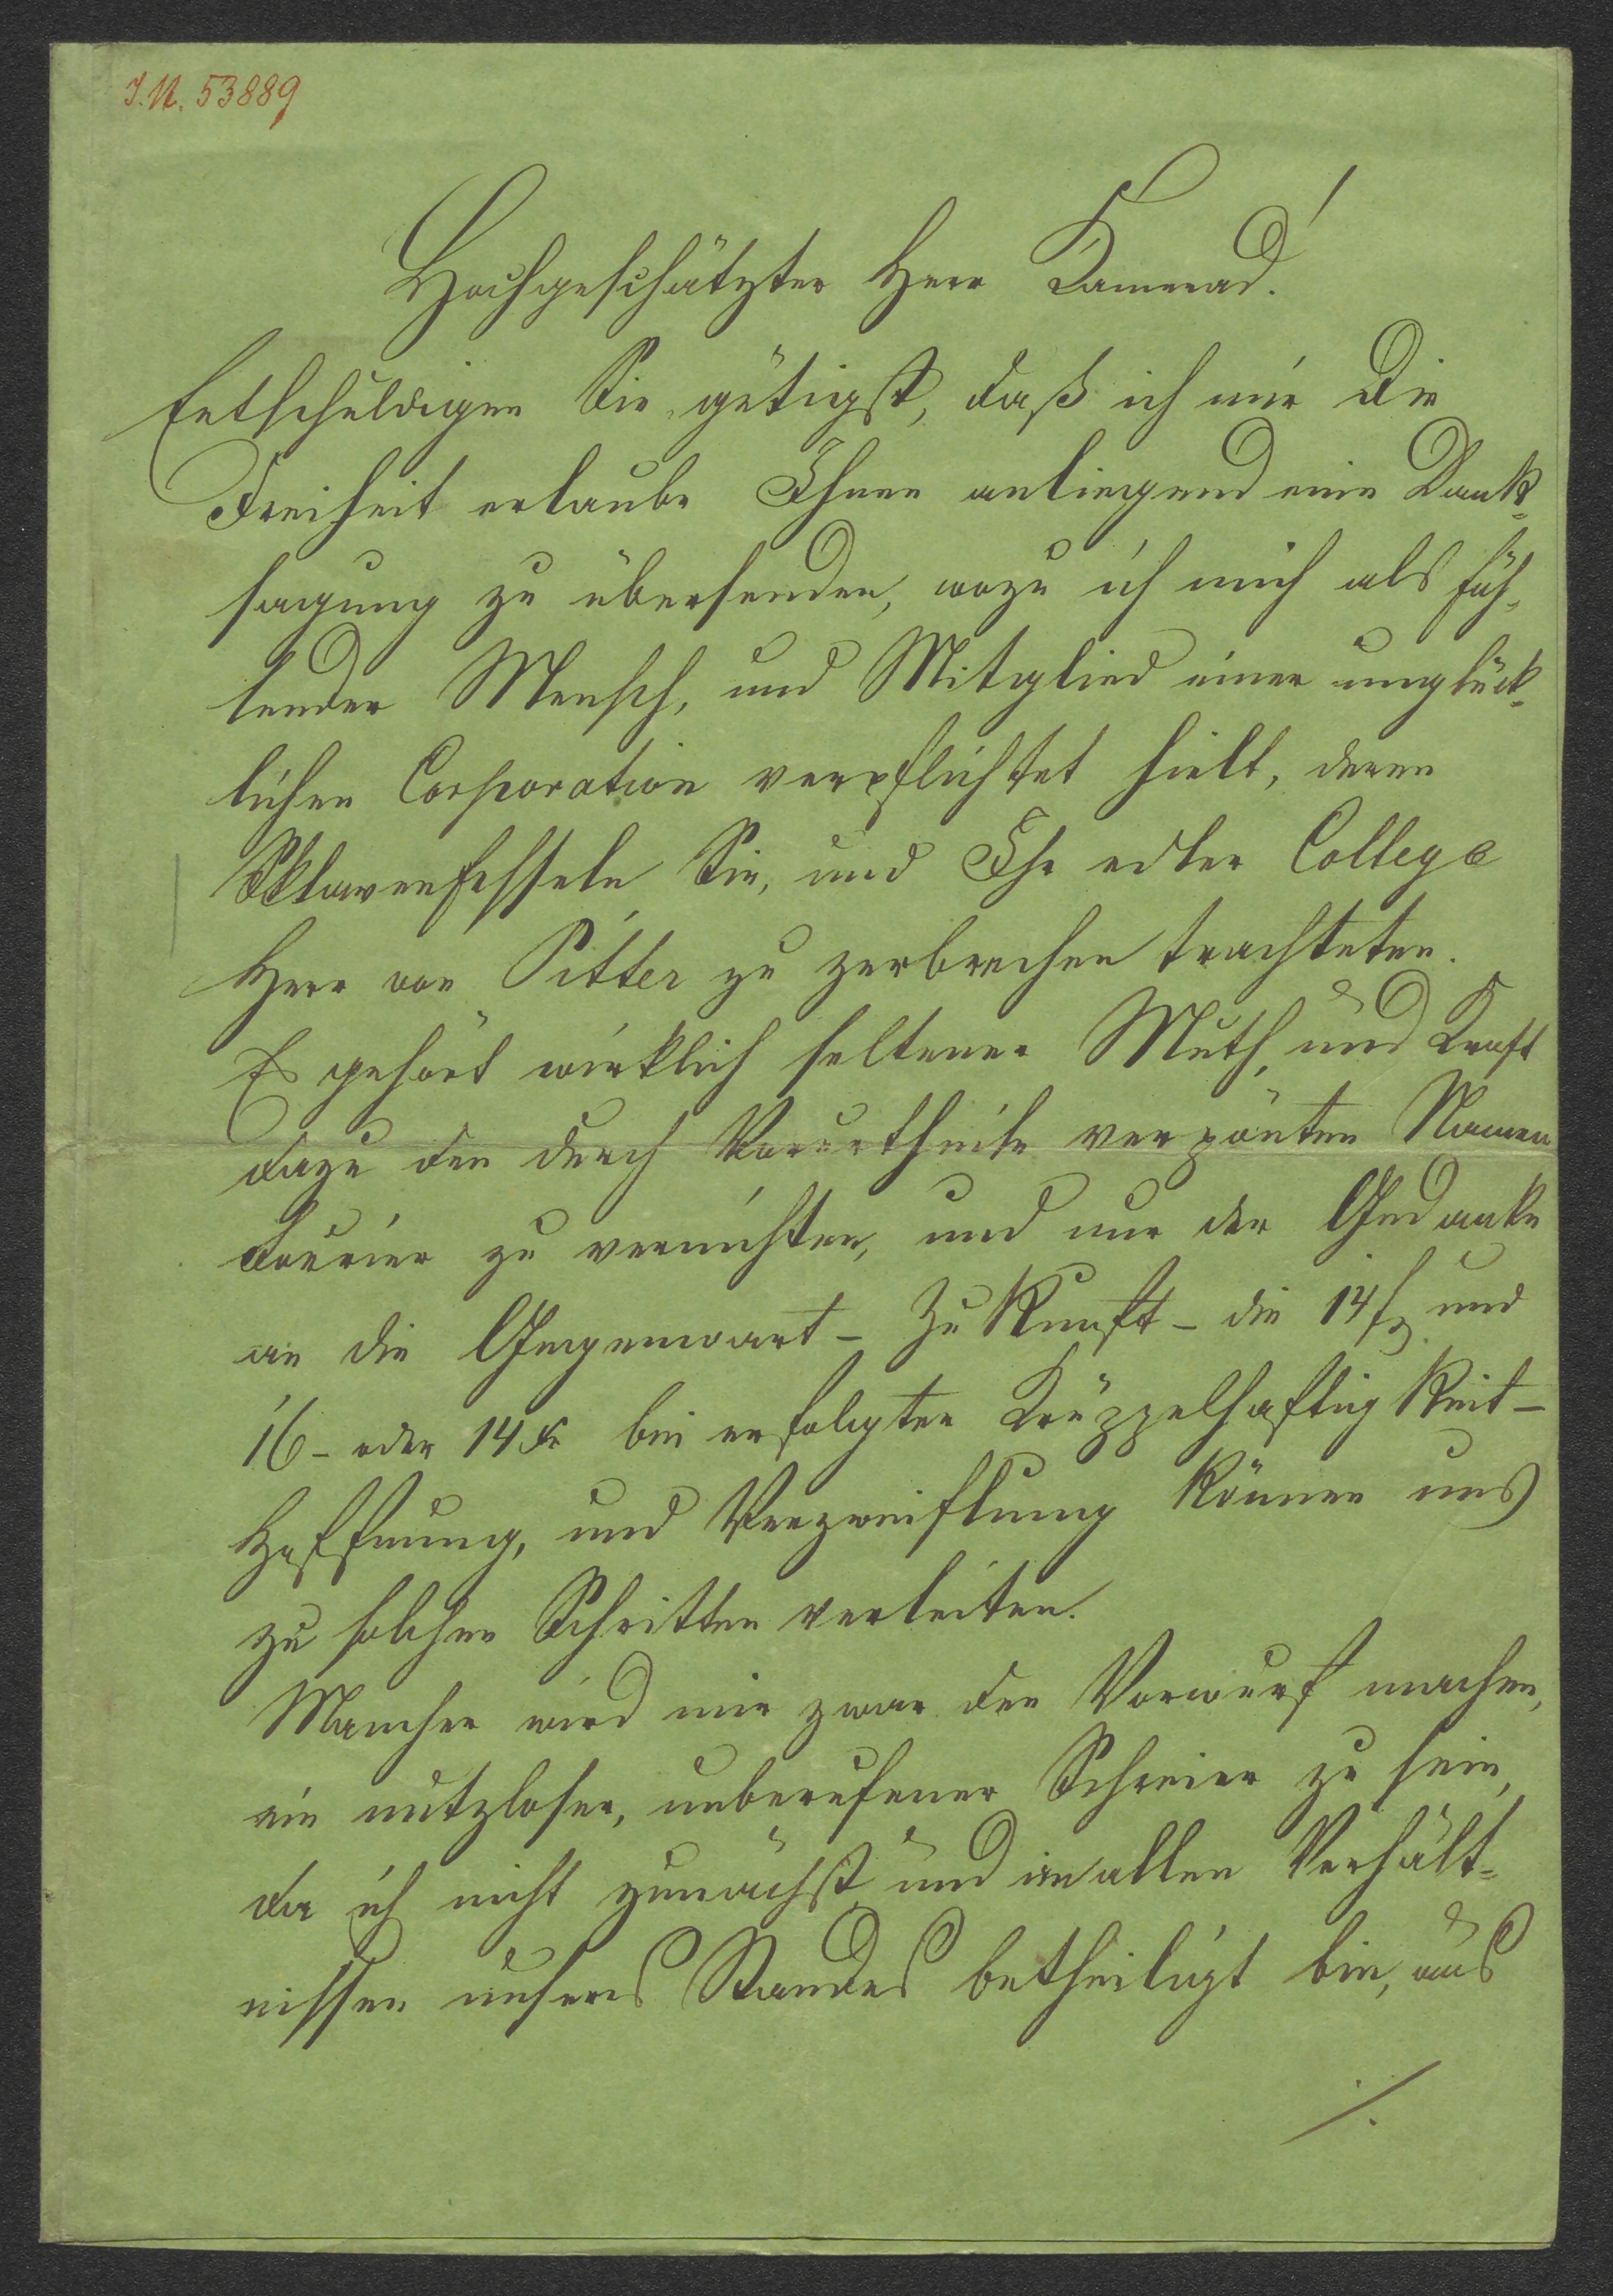 I.N. 53889
Hochgeschätzter Herr Kamerad!
Entschuldigen Sie gütigst, daß ich mir die
Freiheit erlaube Ihnen anliegend eine Dank¬
sagung zu übersenden, wozu ich mich als füh¬
lender Mensch, und Mitglied einer unglück¬
lichen Corporation verpflichtet hielt, deren
Sklavenfesseln Sie, und Ihr edler College
Herr von Pitter zu zerbrechen trachteten.
Es gehört wirklich seltener Muth, und Kraft
dazu den durch Vorurtheile verpönten Namen
Fourier zu vernichten, und nur der Gedanke
an die Gegenwart – Zukunft – die 14 und
16 – oder 14 bei erfolgter Krüppelhaftigkeit –
Hoffnung, und Verzweiflung können uns
zu solchen Schritten verleiten.
Mancher wird mir zwar den Vorwurf machen,
ein nutzloser, unberufener Schreier zu sein,
da ich nicht zunächst und in allen Verhält¬
nissen unsers Standes betheiligt bin, aus
./.